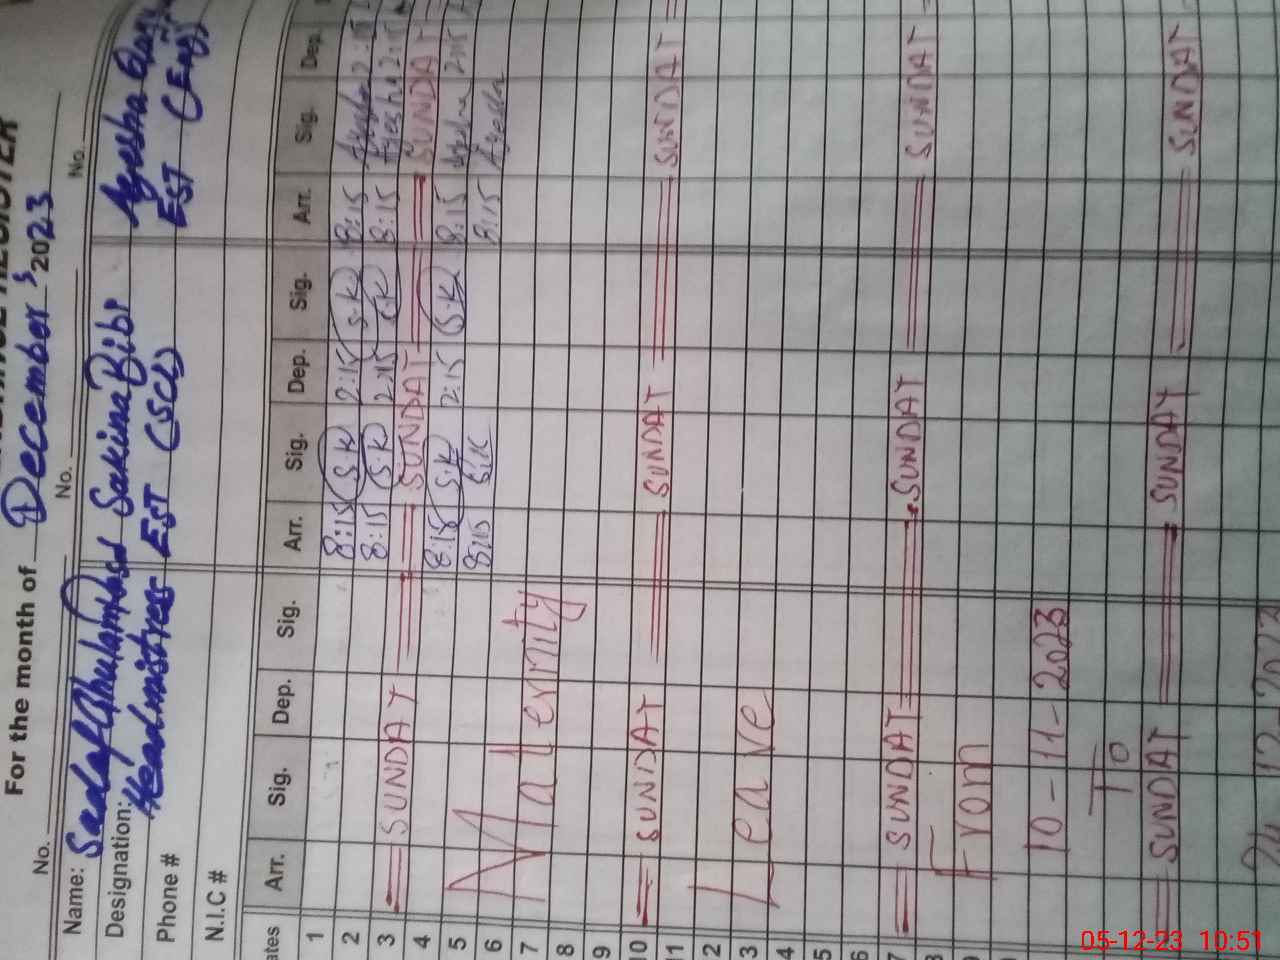 For the month of December, 2023
No. No. No.
Name: Sadaf Ghulam Sakina Bibi Ayesha
Designation: Headmistress EST (SCI) EST (Eng)
Phone #
N.I.C #
Arr. Sig. Dep. Sig. Arr. Sig. Dep. Sig. Arr. Sig. Dep.
1 8:15 S.K 2:15 S.K 8:15 Ayesha 2:15
2 8:15 S.K 2:15 S.K 8:15 Ayesha 2:15
3 SUNDAY SUNDAY SUNDAY
4 8:15 S.K 2:15 S.K 8:15 Ayesha 2:15
5 8:15 S.K 8:15 Ayesha
6 Maternity
7
8
9
10 SUNDAY SUNDAY SUNDAY
11
2 Leave
3
4
5
6
7 SUNDAY SUNDAY SUNDAY
8 From
9
10-11-2023
To
SUNDAY SUNDAY SUNDAY
05-12-23 10:51